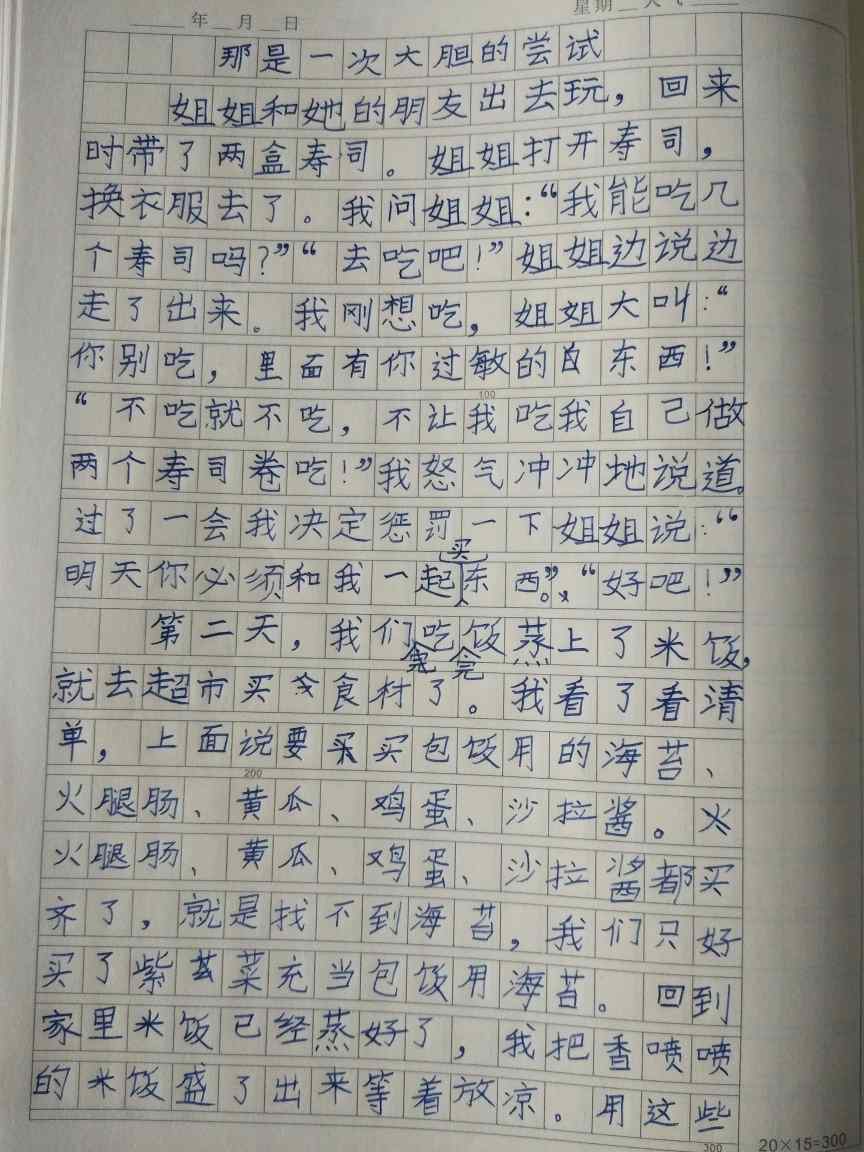 年 月 日 星期 天气
那是一次大胆的尝试
姐姐和她的朋友出去玩，回来
时带了两盒寿司。姐姐打开寿司，
换衣服去了。我问姐姐：“我能吃几
个寿司吗？”“去吃吧！”姐姐边说边
走了出来。我刚想吃，姐姐大叫：“
你别吃，里面有你过敏的东西！”
100
“不吃就不吃，不让我吃我自己做
两个寿司卷吃！”我怒气冲冲地说道。
过了一会我决定惩罚一下姐姐说：“
买
明天你必须和我一起东西。”“好吧！”
第二天，我们吃饭蒸上了米饭，
完
就去超市买食材了。我看了看清
单，上面说要买包饭用的海苔、
200
火腿肠、黄瓜、鸡蛋、沙拉酱。
火腿肠、黄瓜、鸡蛋、沙拉酱都买
齐了，就是找不到海苔，我们只好
买了紫菜充当包饭用海苔。回到
家里米饭已经蒸好了，我把香喷喷
的米饭盛了出来等着放凉。用这些
300
20×15=300